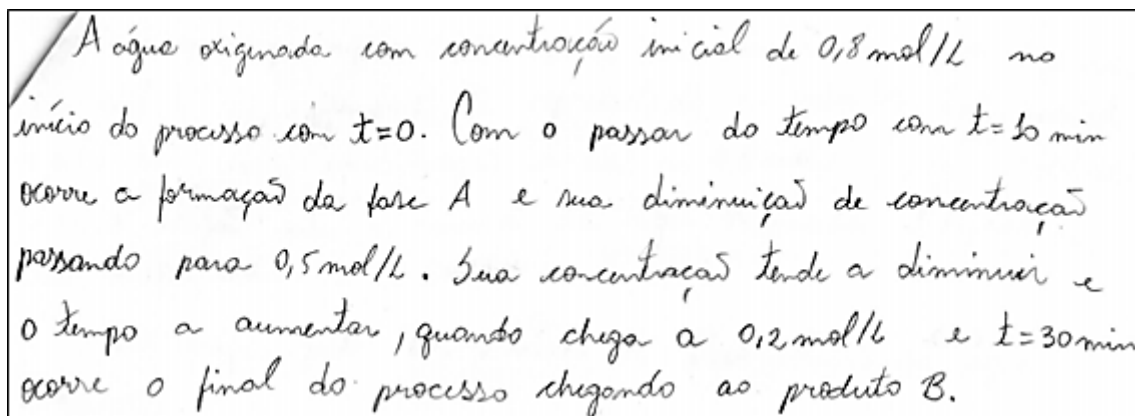 A água oxigenada com concentração inicial de 0,8 mol/L no
início do processo com t=0. Com o passar do tempo com t=10 min
ocorre a formação da fase A e sua diminuiçaõ de concentraçaõ
passando para 0,5 mol/L. Sua concentraçaõ tende a diminuir e
o tempo a aumentar, quando chega a 0,2 mol/L e t=30 min
ocorre o final do processo chegando ao produto B.